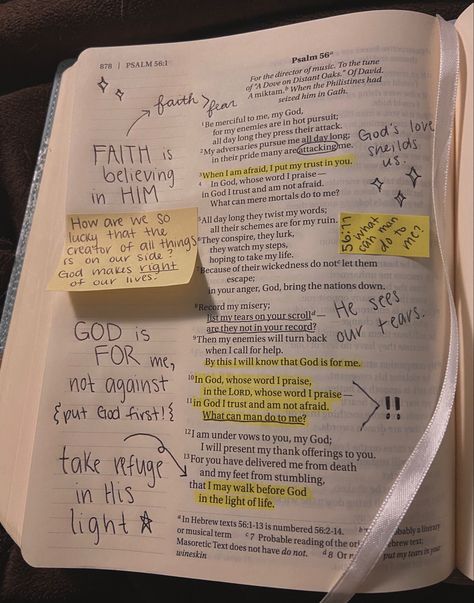 878 | PSALM 56:1
faith > fear
FAITH is
believing
in HIM
How are we so
lucky that the
creator of all things
is on our side?
God makes right
of our lives.
GOD is
FOR me,
not against
{put God first!{
take refuge
in His
light
Psalm 56ᵃ
For the director of music. To the tune
of "A Dove on Distant Oaks." Of David.
A miktam.ᵇ When the Philistines had
seized him in Gath.
¹Be merciful to me, my God,
for my enemies are in hot pursuit;
all day long they press their attack.
²My adversaries pursue me all day long;
in their pride many are attacking me.
³When I am afraid, I put my trust in you.
⁴In God, whose word I praise—
in God I trust and am not afraid.
What can mere mortals do to me?
⁵All day long they twist my words;
all their schemes are for my ruin.
⁶They conspire, they lurk,
they watch my steps,
hoping to take my life.
⁷Because of their wickedness do notᶜ let them
escape;
in your anger, God, bring the nations down.
⁸Record my misery;
list my tears on your scrollᵈ—
are they not in your record?
⁹Then my enemies will turn back
when I call for help.
By this I will know that God is for me.
¹⁰In God, whose word I praise,
in the LORD, whose word I praise—
¹¹in God I trust and am not afraid.
What can man do to me?
¹²I am under vows to you, my God;
I will present my thank offerings to you.
¹³For you have delivered me from death
and my feet from stumbling,
that I may walk before God
in the light of life.
God's love
sheilds
us.
56:11
what
can man
do to
me?
He sees
our tears.
!!
ᵃIn Hebrew texts 56:1-13 is numbered 56:2-14. ᵇ ably a literary
or musical term ᶜ7 Probable reading of the orig ebrew text;
Masoretic Text does not have do not. ᵈ8 Or put my tears in your
wineskin